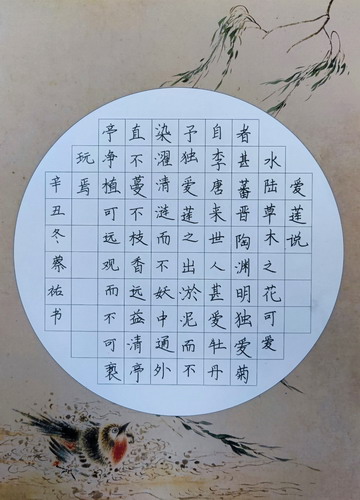 爱莲说
水陆草木之花可爱
者甚蕃晋陶渊明独爱菊
自李唐来世人甚爱牡丹
予独爱莲之出淤泥而不
染濯清涟而不妖中通外
直不蔓不枝香远益清亭
亭净植可远观而不可亵
玩焉
辛丑冬蔡祐书